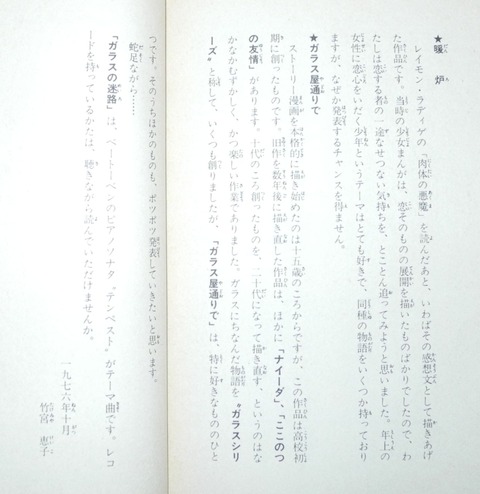 ★暖炉
レイモン・ラディゲの「肉体の悪魔」を読んだあと、いわばその感想文として描きあげ
た作品です。当時の少女まんがは、恋そのものの展開を描いたものばかりでしたので、わ
たしは恋する者の一途なせつない気持ちを、とことん追ってみようと思いました。年上の
女性に恋心をいだく少年というテーマはとても好きで、同種の物語をいくつか持っており
ますが、なぜか発表するチャンスを得ません。
★ガラス屋通りで
ストーリー漫画を本格的に描き始めたのは十五歳のころからですが、この作品は高校初
期に創ったものです。旧作を数年後に描き直した作品は、ほかに「ナイーダ」、「ここのつ
の友情」があります。十代のころ創ったものを、二十代になって描き直す、というのはな
かなかむずかしく、かつ楽しい作業でありました。ガラスにちなんだ物語を〝ガラスシリ
ーズ〟と称して、いくつも創りましたが、「ガラス屋通りで」は、特に好きなもののひと
つです。そのうちほかのものも、ポツポツ発表していきたいと思います。
蛇足ながら……
「ガラスの迷路」は、ベートーベンのピアノソナタ〝テンペスト〟がテーマ曲です。レコ
ードを持っているかたは、聴きながら読んでいただけませんか。
一九七六年十月
竹宮恵子